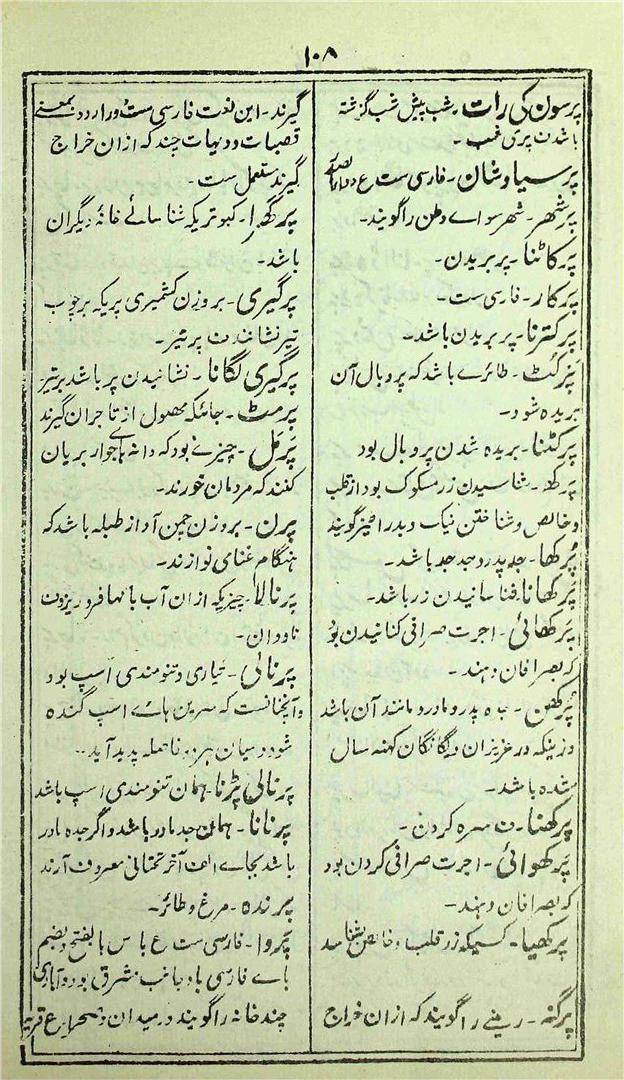 ۱۰۸
پرسون کی رات۔ شب پیش شب گزشتہ
باشد ن پری شب۔
پرسیاوشان۔ فارسی ست ع
پرشہر۔ شہر سواے وطن را گویند۔
پر کاٹنا۔ پر بریدن۔
پرکار۔ فارسی ست۔
پر کترنا۔ پر بریدن باشد۔
پَرکَٹ۔ طائرے باشد کہ پر و بال آن
بریدہ شود۔
پر کٹنا۔ بریدہ شدن پر و بال بود
پرکھ۔ شناسیدن زر مسکوک بود از قلب
و خالص و شناختن نیک و بد را نیز گویند
پُرکھا۔ جد پدر و جد جد باشد۔
پَرکھانا۔ شناسانیدن زر باشد۔
پَرکھائی۔ اجرت صرافی کنانیدن بود
کہ بصرافان دہند۔
پُرکھن۔ جدہ پدر و مادر و مانند آن باشد
و زنیکہ در عزیزان و یگانگان کہنہ سال
شدہ باشد۔
پرکھنا۔ ن سرہ کردن۔
پَرکھوائی۔ اجرت صرافی کردن بود
کہ بصرافان دہند۔
پرکھیا۔ کسیکہ زر قلب و خالص بشناسد
پرگنہ۔ زمینے را گویند کہ ازان خراج
گیرند۔ این لغت فارسی ست و در اردو بمعنے
قصبات و دیہات چند کہ ازان خراج
گیرند مستعمل ست۔
پرگھرا۔ کبوتریکہ شناسائے خانہ دیگران
باشد۔
پرگیری۔ بر وزن کشمیری پریکہ بر چوب
تیر نشانند ن پر تیر۔
پرگیری لگانا۔ نشانیدن پر باشد بر تیر
پرمٹ۔ جائیکہ محصول از تاجران گیرند
پَرمَل۔ چیزے بود کہ دانہ ہاے جوار بریان
کنند کہ مردمان خورند۔
پرن۔ بر وزن چمن آواز طبلہ باشد کہ
ہنگام غنای نوازند۔
پرنالا۔ چیزیکہ ازان آب بامہا فرو ریزد ن
ناودان۔
پرنالی۔ تیاری و تنومندی اسپ بود
و آنچنانست کہ سرین ہاے اسپ گندہ
شود و میان ہر دو فاصلہ پدید آید۔
پرنالی پڑنا۔ ہمان تنومندی اسپ باشد
پرنانا۔ ہمان جد مادر باشد و اگر جدہ مادر
باشد بجاے الف آخر تحتانی معروف آرند
پرندہ۔ مرغ و طائر۔
پَروا۔ فارسی ست ع باس بالفتح و بضم
باے فارسی باد جانب مشرق بود و آبادی
چند خانہ را گویند در میدان و صحرا ع قریہ